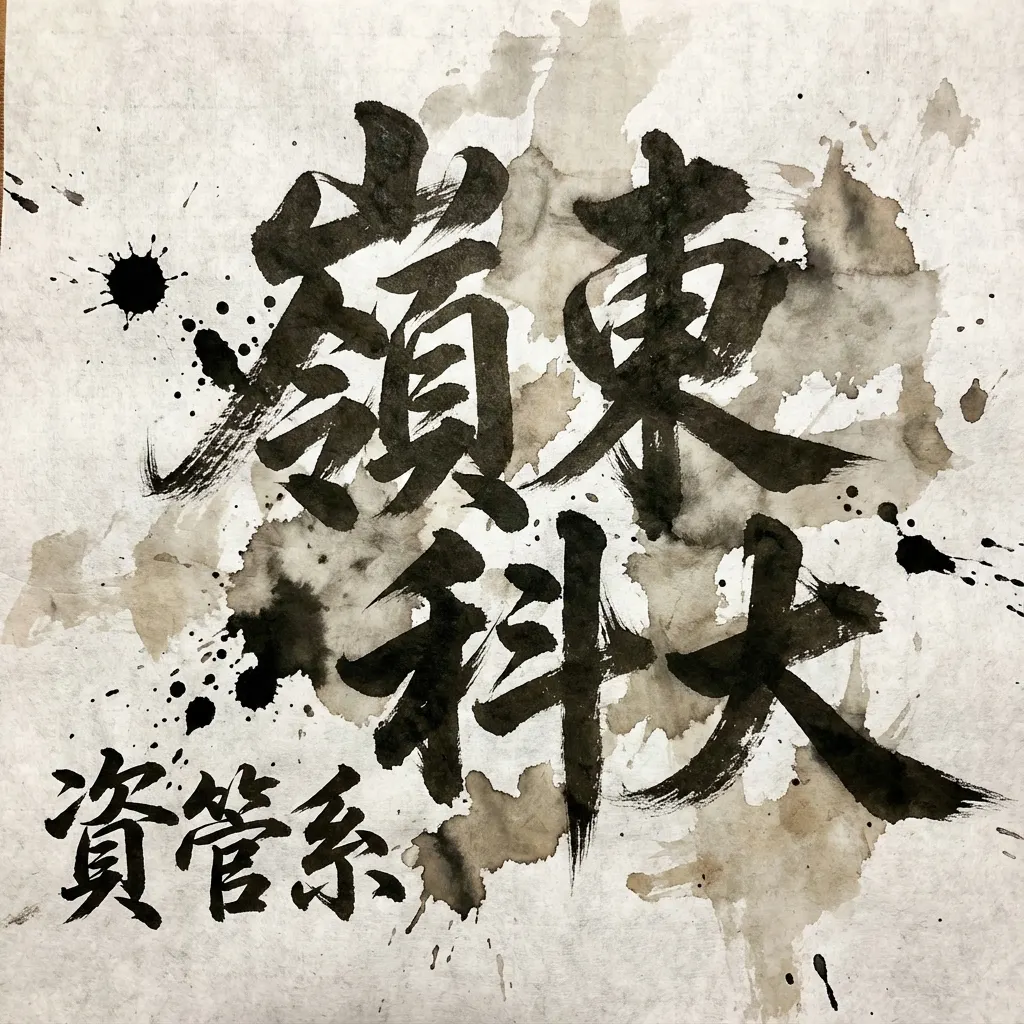 嶺東
科大
資管系